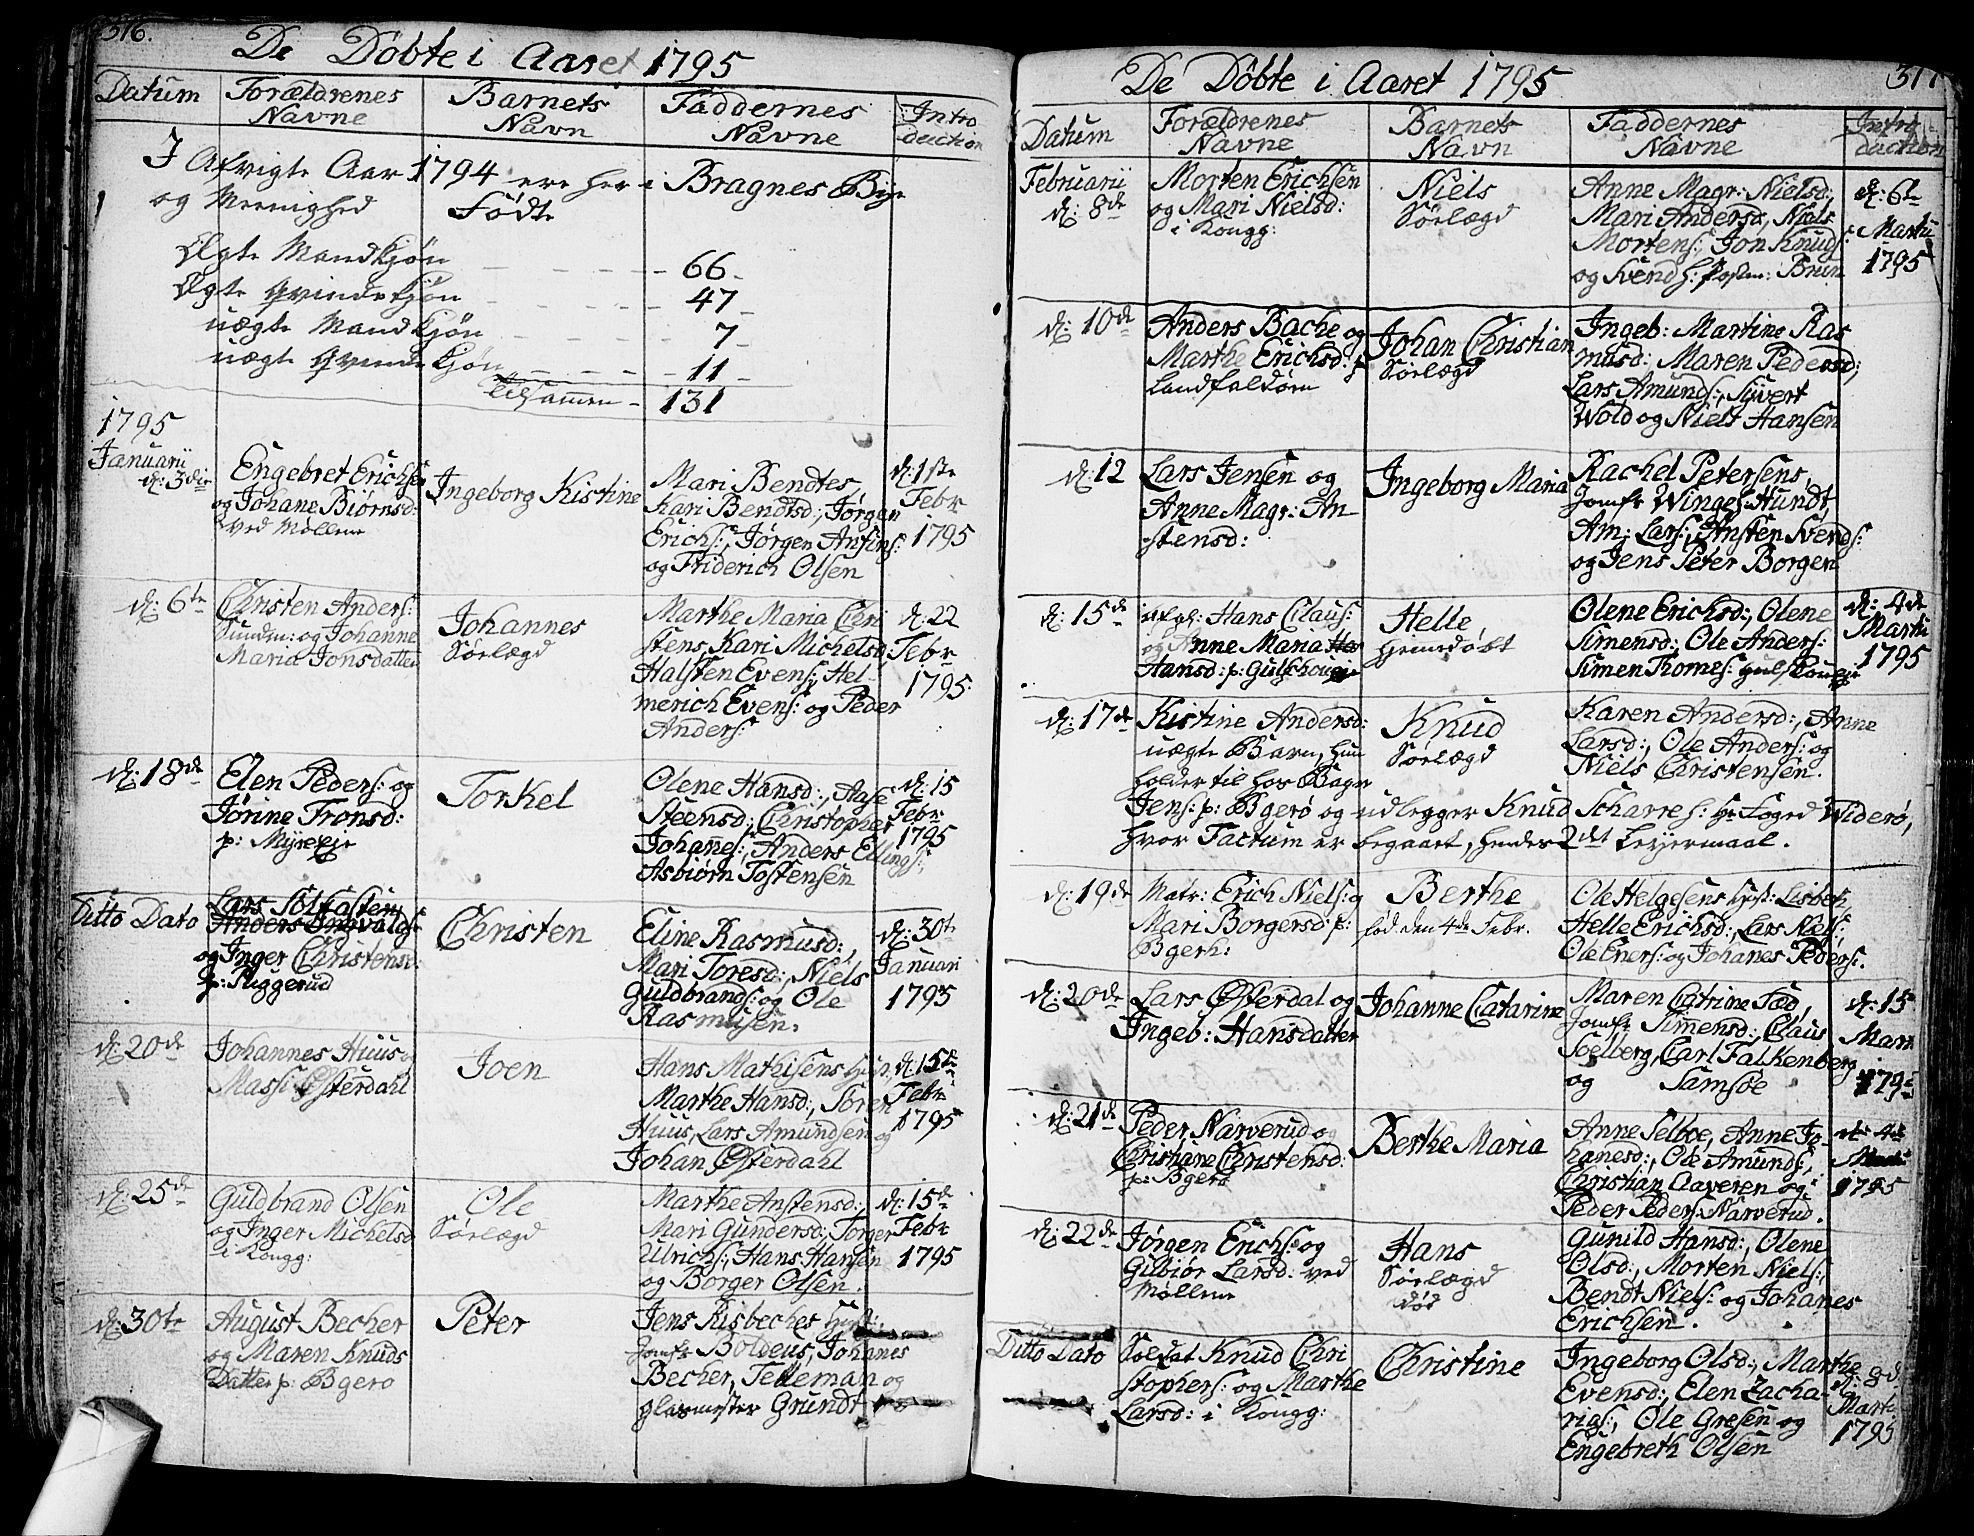 376.
De Döbte i Aaret 1795
Datum
Forældrenes
Navne
Barnets
Navn
Faddernes
Navne
Intro
duction
I Afvigte Aar 1794 ere her i Bragnes Bye
og Meenighed Födte
Ægte Mandkjön - - - - - 66 -
Ægte Qvindekjön - - - - 47 -
uægte Mandkjön - - - 7 -
uægte Qvindekjön - - - - 11 -
Tilsamen - 131
1795
Januarii
d: 3die
Engebret Erichs:
og Johane Biörnsd:
ved Möllene
Ingeborg Kistine
Mari Bendtes,
Kari Bendtsd:, Jörgen
Erichs:, Jörgen Ansins:
og Friderich Olsen
d: 1ste
Febr
1795
d: 6te
Christen Anders:
Sunden: og Johanne
Maria Jonsdatter
Johannes
Sörlægd
Marthe Maria Chri
stens, Kari Michelsd
Halsten Evens; Hel-
merich Evens: og Peder
Anders:
d: 22
Febr
1795.
d: 18de
Elen Peders: og
Jörine Tronsd:
p: Myreeje
Torkel
Olene Hansd:, Aase
Steensd:, Christopher
Johanes:, Anders Ellings:,
Asbiörn Tostensen
d: 15
Febr
1795
Ditto Dato
Lars Solfasten,
Anders Ingvalds:
og Inger Christensd:
p: Muggerud
Christen
Eline Rasmusd:,
Mari Toresd:, Niels
Guldbrands: og Ole
Rasmusen.
d: 30te
Januari
1795
d: 20de
Johannes Huus
Massi Østerdahl
Joen
Hans Mathisens
Marthe Hansd:, Sören
Huus, Lars Amundsen og
Johan Østerdahl
d: 15de
Febr
1795
d: 25de
Guldbrand Olsen
og Inger Michelsd
i Kongg:
Ole
Sörlægd
Marthe Anstensd:,
Mari Gundersd:, Torger
Ulrichs:, Hans Hansen
og Borger Olsen.
d: 15de
Febr
1795
d: 30te
August Becher
og Maren Knuds
Datter p: Bgerö
Peter
Jens Risbeches Hust:
Jomfr Boldeus, Johanes
Becher, Telleman og
glasmester Grundt
De Döbte i Aaret 1795
377
Datum
Forældrenes
Navne
Barnets
Navn
Faddernes
Navne
Intro
duction
Februarii
d: 8de
Morten Erichsen
og Mari Nielsd:
i Kongg:
Niels
Sörlægd
Anne Magr: Nielsd:,
Mari Andersd, Niels
Mortens: Jon Knuds:
og Svend h: Brun
d: 6te
Martii
1795
d: 10de
Anders Bache og
Marthe Erichsd: p
Landfaldöen
Johan Christian
Sörlægd
Ingeb: Martine Ras
musd: Maren Pedersd:,
Lars Amunds:, Syvert
Wold og Niels Hansen
d: 12
Lars Jensen og
Anne Magr: An
stensd:
Ingeborg Maria
Rachel Petersens,
Jomfr Winge: Hundt,
Am: Lars:, Ansten Svends:
og Jens Peter Borgen
d: 15de
afgl: Hans Claus:
og Anne Maria
Hansd: p: Gulskougeje
Helle,
Hjemdöbt
Olene Erichsd:, Olene
Simensd:, Ole Anders:
Simen Thomes: Gulskougeje
d: 4de
Martii
1795
d: 17de
Kistine Andersd:
uægte Barn, hun
holder til hos Bager
Jens: p: Bgerö og udlegger Knud Scharres: hr Foged Widerö,
hvor Factum er begaaet, hendes 2det Leyermaal.
Knud
Sörlægd
Karen Andersd:, Anne
Larsd:, Ole Anders: og
Niels Christensen.
d: 19de
Matr: Erich Niels: og
Mari Borgersd p:
Bgerh:
Berthe
föd den 4de Febr.
Ole Helgesens Hust: Lisbeth,
Helle Erichsd:, Lars Niels:,
Ole Eners: og Johanes Peders:.
d: 20de
Lars Østerdal og
Ingeb: Hansdatter
Johanne Catarine
Maren Catrine Fæd,
Jomfr Simensd:, Claus
Soelberg, Carl Falkenberg
og Samsöe
d: 15
Mart
1795
d: 21de
Peder Narverud og
Christiane Christensd:
p: Bgerö
Berthe Maria
Anne Selboe, Anne Jo-
hanesd:, Ole Amunds:,
Christian Aaveren og
Peder Peders: Narverud.
d: 4de
1795
d: 22de
Jörgen Erichs: og
Gubiör Larsd: ved
Möllene
Hans
Sörlægd
död
Gunild Hansd:, Olene
Olsd:, Morten Niels:,
Bendt Niels: og Johanes
Erichsen.
Ditto Dato
Soldat Knud Chri
stophers: og Marthe
Larsd: i Kongg:
Christine
Ingeborg Olsd:, Marthe
Evensd:, Elen Zacha-
rias:, Ole Gresen og
Engebreth Olsen
d: 8d
Martii
1795